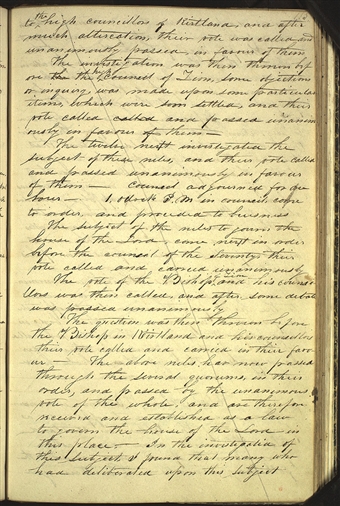 the
to high councellors of Kirtland, and after
much altercation, their vote was called and
unanimously passed in favour of them
The investigation was then thrown bef
ore the high council of Zion, some objections
or inquiry was made upon some particular
items, which were soon settled, and their
vote called called and passed unanim
ously in favour of them—
The twelve next investigated the
subject of these rules, and their vote called
and passed unanimously in favour
of them— Council adjourned for one
hour— 1, oclock P.M in council, came
to order, and proceeded to business
The subject of the rules to govern the
house of the Lord come next in order
before the council of the Seventy their
vote called and carried unanimously
The vote of the Bishop in Zion and his counse
llors was then called, and after some debate
was passed unanimously
The question was then thrown before
the Bishop in Kirtland and his counsellors
their vote called and carried in their fav
our— The above rules has now passed
through the several quorums, in their
order, and passed by the unanimous
vote of the whole, and are therefore
received and established as a law
to govern the house of the Lord in
this place,— In the investigation of
this subject I found that many who
had deliberated upon this subject